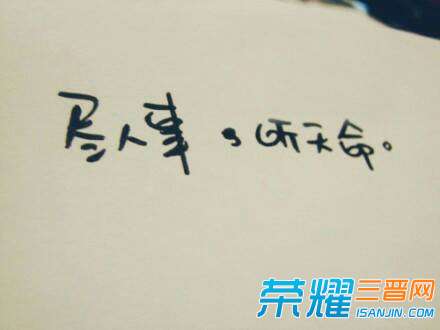 尽人事,听天命。
荣耀三晋网
ISANJIN.COM